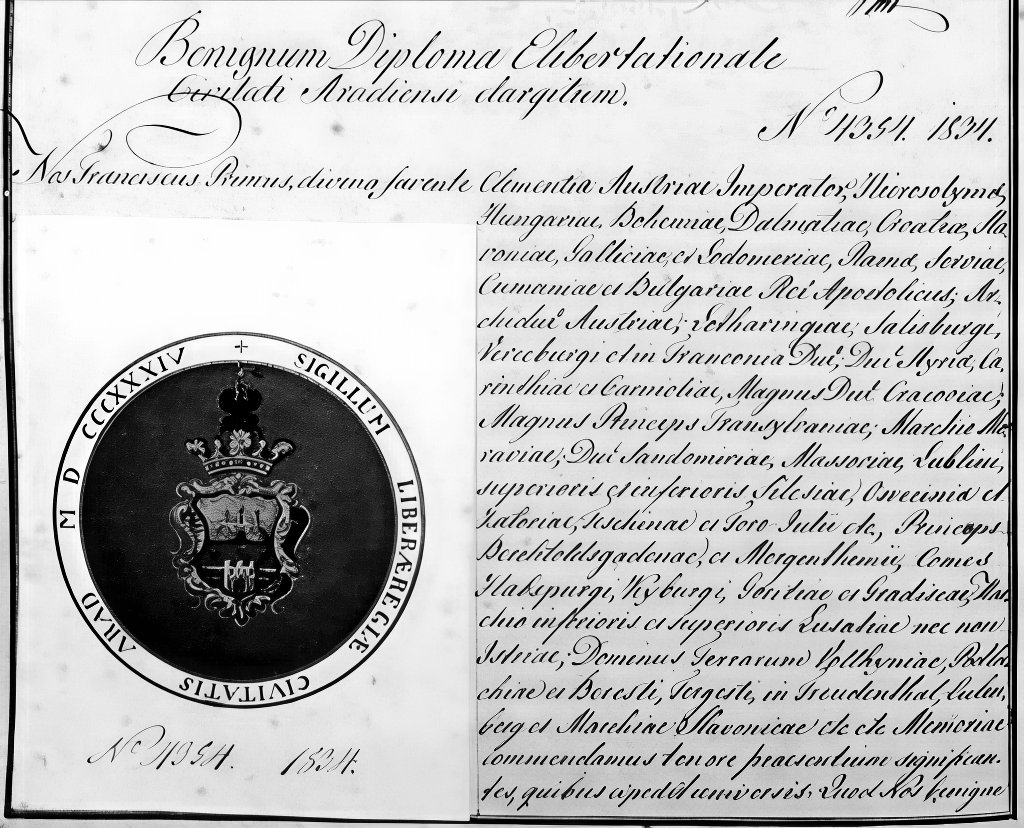 Benignum Diploma Elibertationale
Civitati Aradiensi elargitum.
Nº 4354. 1834.
Nos Franciscus Primus, divina favente Clementia Austriae Imperator, Hierosolymæ,
Hungariae, Bohemiae, Dalmatiae, Croatiæ, Sla-
voniae, Galliciae, et Lodomeriae, Ramæ, Serviae,
Cumaniae et Bulgariae Rex Apostolicus; Ar-
chidux Austriae; Lotharingiae, Salisburgi,
Verceburgi et in Franconia Dux; Dux Styriæ, Ca-
rinthiae et Carnioliae, Magnus Dux Cracoviae;
Magnus Princeps Transylvaniae; Marchio Mo-
raviae; Dux Sandomiriae, Massoviae, Lublini,
superioris et inferioris Silesiae, Osveciniæ et
Zatoriae, Teschinae et Foro Julii etc, Princeps
Berchtoldsgadenae, et Mergenthemii, Comes
Habspurgi, Kyburgi, Goritiae et Gradiscae, Mar-
chio inferioris et superioris Lusatiae nec non
Istriae; Dominus Terrarum Volhyniae, Podla-
chiae et Beresti, Tergesti, in Freudenthal, Eulen-
berg et Marchiae Slavonicae etc etc Memoriae
commendamus tenore praesentium significan-
tes, quibus expedit universis. Quod Nos benigne
+ SIGILLUM LIBERÆ REGIÆ CIVITATIS ARAD M D CCCXXXIV
Nº 4354. 1834.